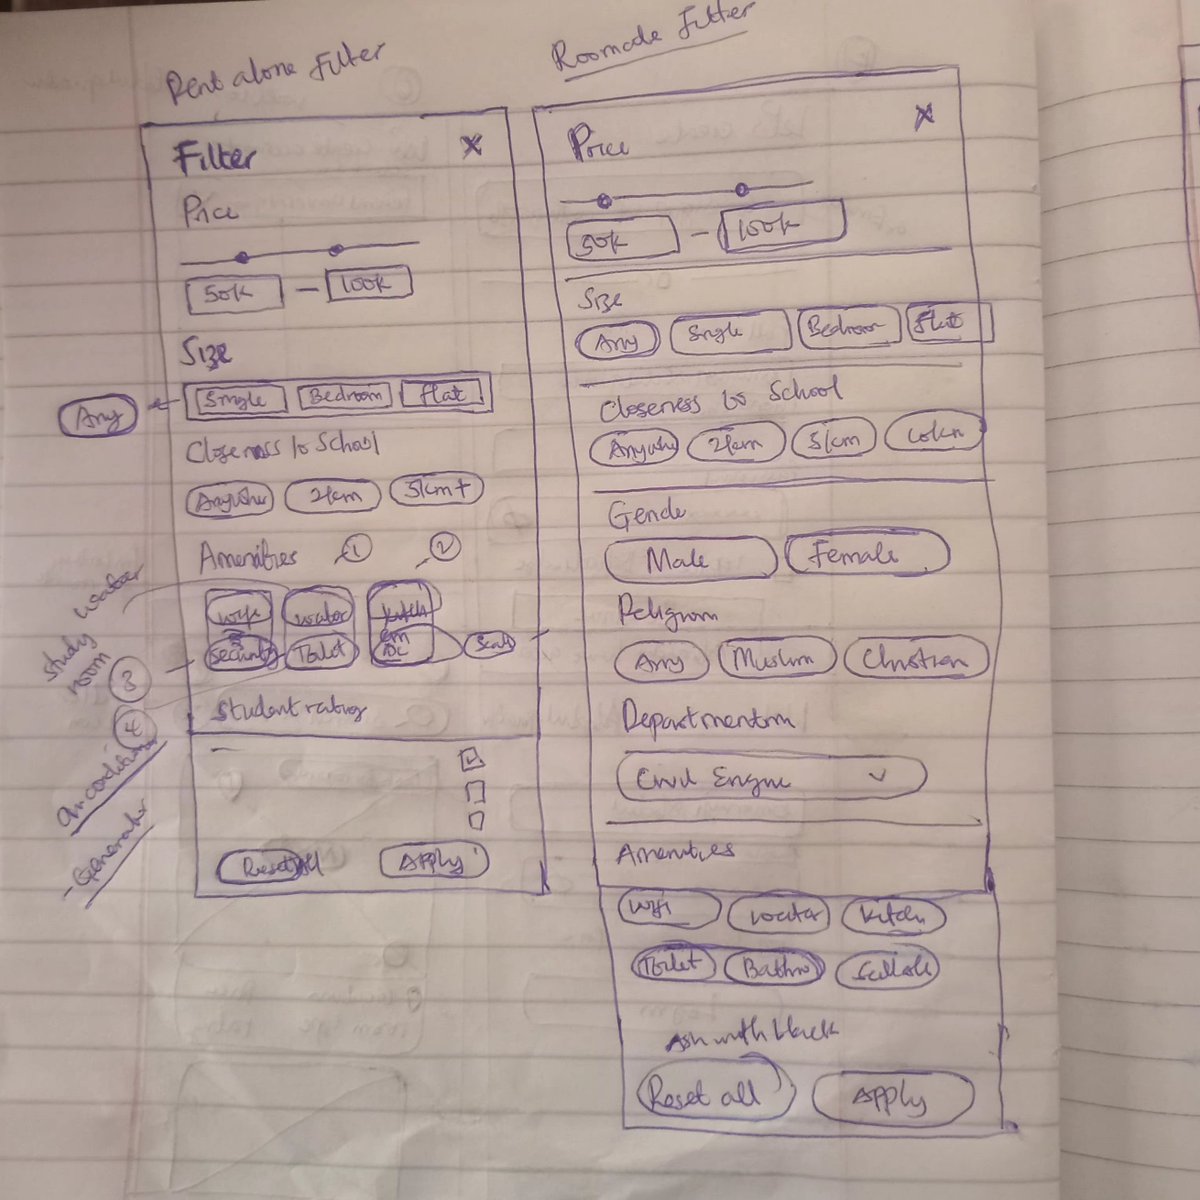 Rent alone Filter
Filter X
Price
50k – 100k
Size
Any
Single Bedroom flat
Closeness to School
2km 5km+
Amenities 1 2
wifi water
Security Toilet AC
water
Study room
3
4
Air condition
- Generator
Student rating
Reset All Apply
Roomate Filter
Price X
50k – 100k
Size
Any Single Bedroom flat
Closeness to School
2km 5km 10km
Gende
Male Female
Religion
Any Muslim Christian
Department
Civil Engine
Amenities
wifi water kitchn
Toilet
Ash with black
Reset all Apply